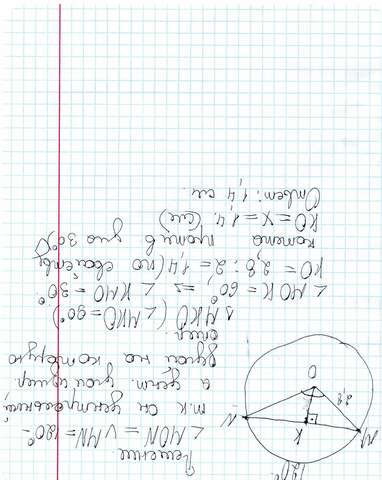 120°
M
K
N
x
2,8
O
Решение.
∠MON = ∪MN = 120° -
т.к. он центральный,
а центр. угол измер.
дугой на которую
опир.
△MKO (∠MKO = 90°)
∠MOK = 60° ⇒ ∠KMO = 30°
KO = 2,8 : 2 = 1,4 (по свойству
катета против
угла 30°)
KO = x = 1,4 (см)
Ответ: 1,4 см